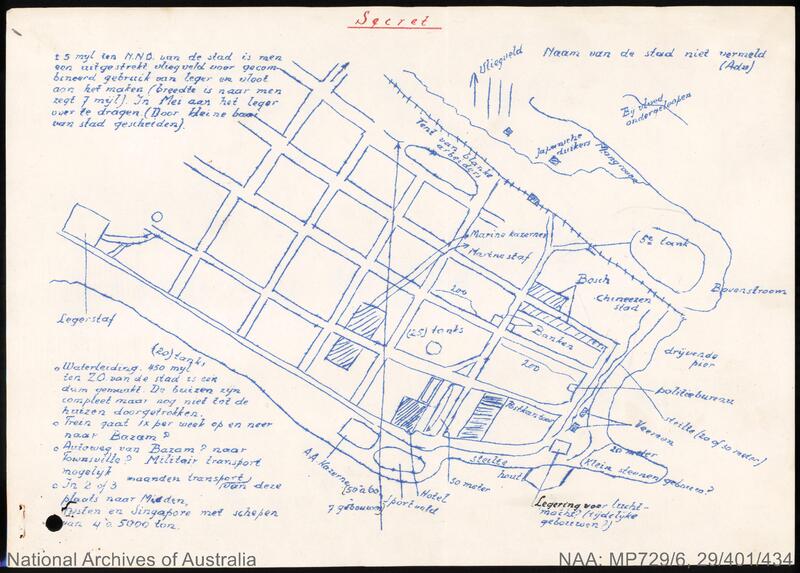 Secret
± 5 myl ten N.N.O. van de stad is men
een uitgestrekt vliegveld voor gecom-
bineerd gebruik van leger en vloot
aan het maken (breedte is naar men
zegt 7 myl). In Mei aan het leger
over te dragen. (Door kleine baai
van stad gescheiden).
Naam van de stad niet vermeld
(Adu)
Vliegveld
By vloed
ondergeloopen
Japansche
duikers
Mangroves
Tent van blanke
arbeiders
Marine kazerne
Marinestaf
5e tank
Bovenstroom
Bosch
Chineezen
stad
200
(25) tanks
Banken
200
drijvende
pier
politiebureau
Postkantoor
steilte (20 of 30 meter)
Veeren
20 meter
(Klein steenen) gebouwen?
steilte
hout
30 meter
Hotel
sportveld
A.A. Kazerne
(50 à 60
7 gebouwen)
Legering voor lucht-
macht? (tijdelijke
gebouwen?)
Legerstaf
(20) tank,
o Waterleiding. 450 myl
ten ZO. van de stad is een
dam gemaakt. De buizen zyn
compleet maar nog niet tot de
huizen doorgetrokken.
o Trein gaat 1x per week op en neer
naar Bazam?
o Autoweg van Bazam? naar
Townsville? Militair transport
mogelyk
o In 2 of 3 maanden transport van deze
plaats naar Midden,
Oosten en Singapore met schepen
van 4 à 5000 ton.
National Archives of Australia
NAA: MP729/6, 29/401/434